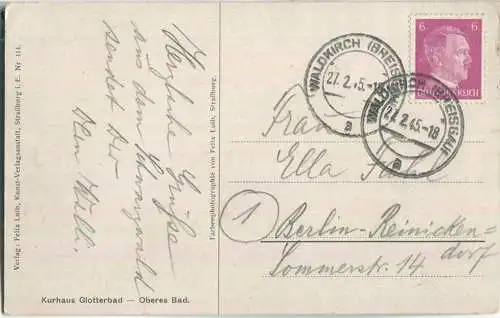 Verlag: Felix Luib, Kunst-Verlagsanstalt, Straßburg i. E. Nr. 114.
Herzliche Grüße
aus dem Schwarzwald
sendet Dir
Dein Willi.
Farbenphotographie von Felix Luib, Straßburg.
Kurhaus Glotterbad — Oberes Bad.
6 6
WALDKIRCH (BREISGAU)
27.2.45.-18
a
WALDKIRCH (BREISGAU)
27.2.45.-18
a
Frau
Ella
1
Berlin-Reinicken-
dorf
Sommerstr. 14